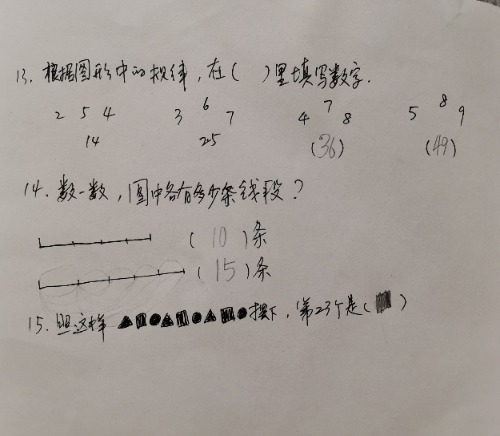 13. 根据图形中的规律，在（ ）里填写数字.
2 5 4 3 6 7 4 7 8 5 8 9
14 25 (36) (49)
14. 数一数，图中各有多少条线段？
( 10 )条
( 15 )条
15. 照这样 ▲■●▲■●▲■● 摆下，第23个是(■)